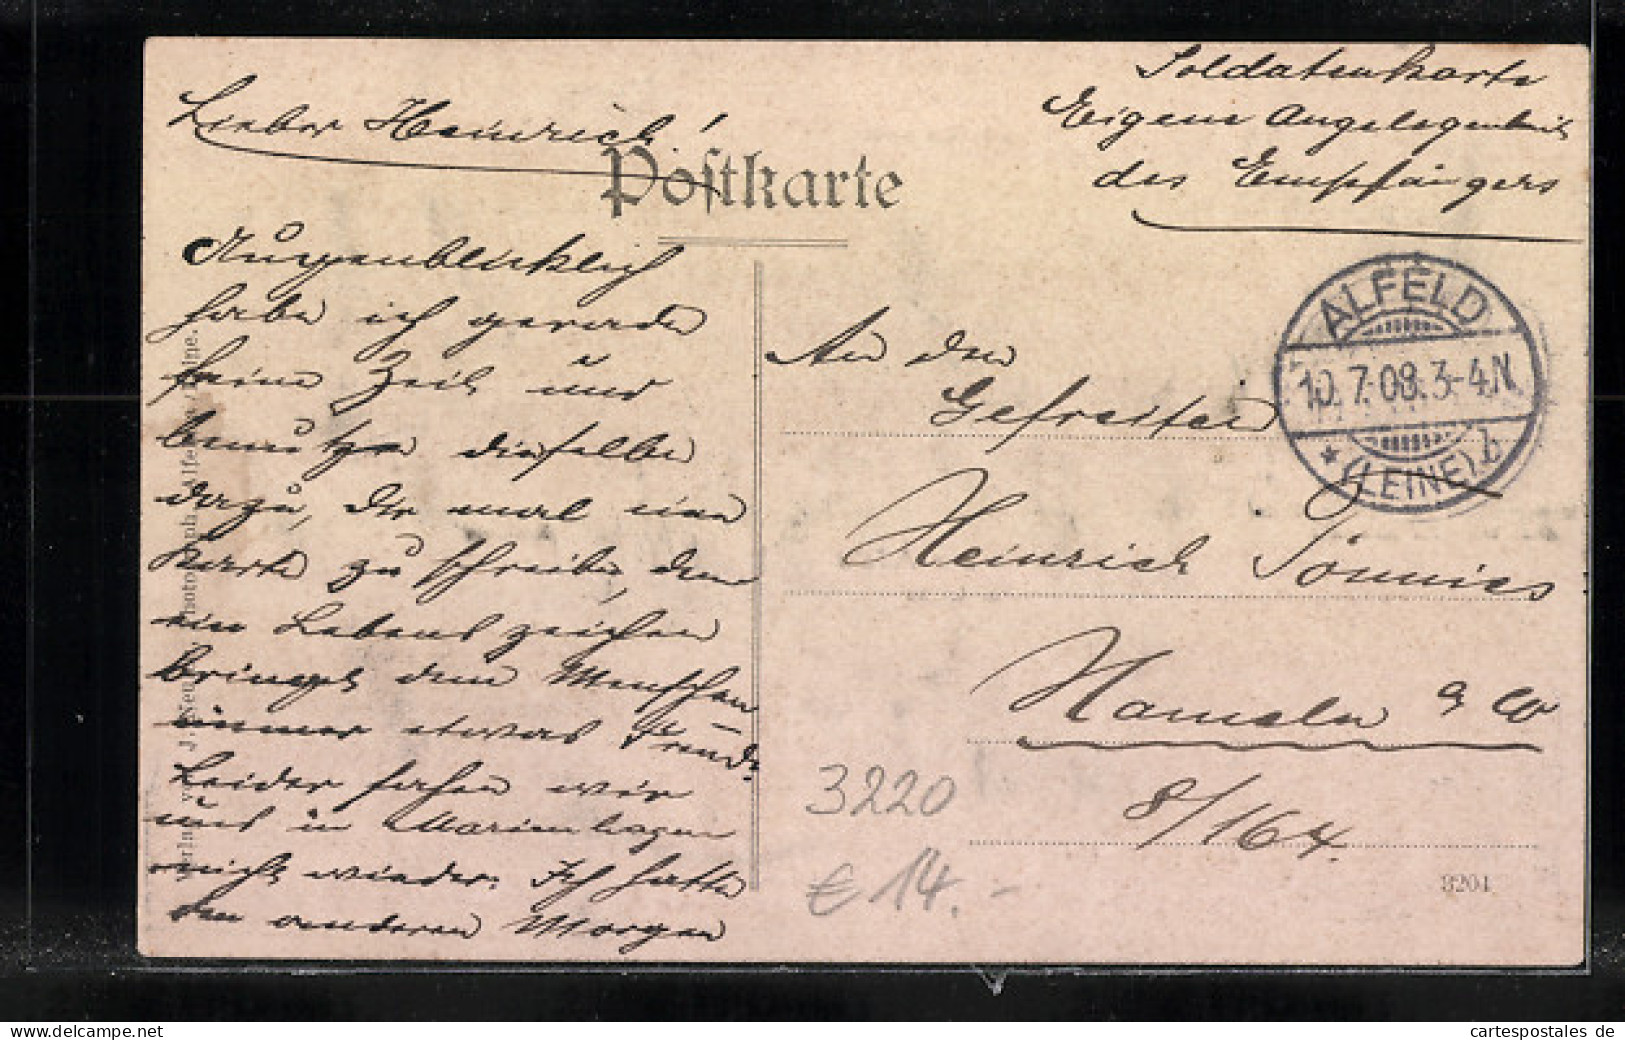 Soldatenkarte
Eigene Angelegenheit
des Empfängers
Lieber Heinrich!
Postkarte
Augenblicklich
habe ich gerade
keine Zeit und
benutze dieselbe
dazu, Dir mal eine
Karte zu schreiben, denn
ein Lebenszeichen
bringt dem Menschen
immer etwas Freude.
Leider sahen wir
uns in Marienhagen
nicht wieder. Ich hatte
den anderen Morgen
ALFELD
10.7.08.3-4N.
* (LEINE) b
An den
Gefreiten
Heinrich Tönnies
Hameln a W
8/164.
3220
€ 14.-
3204
Alfeld / Leine.
www.cartespostales.de
cartespostales de